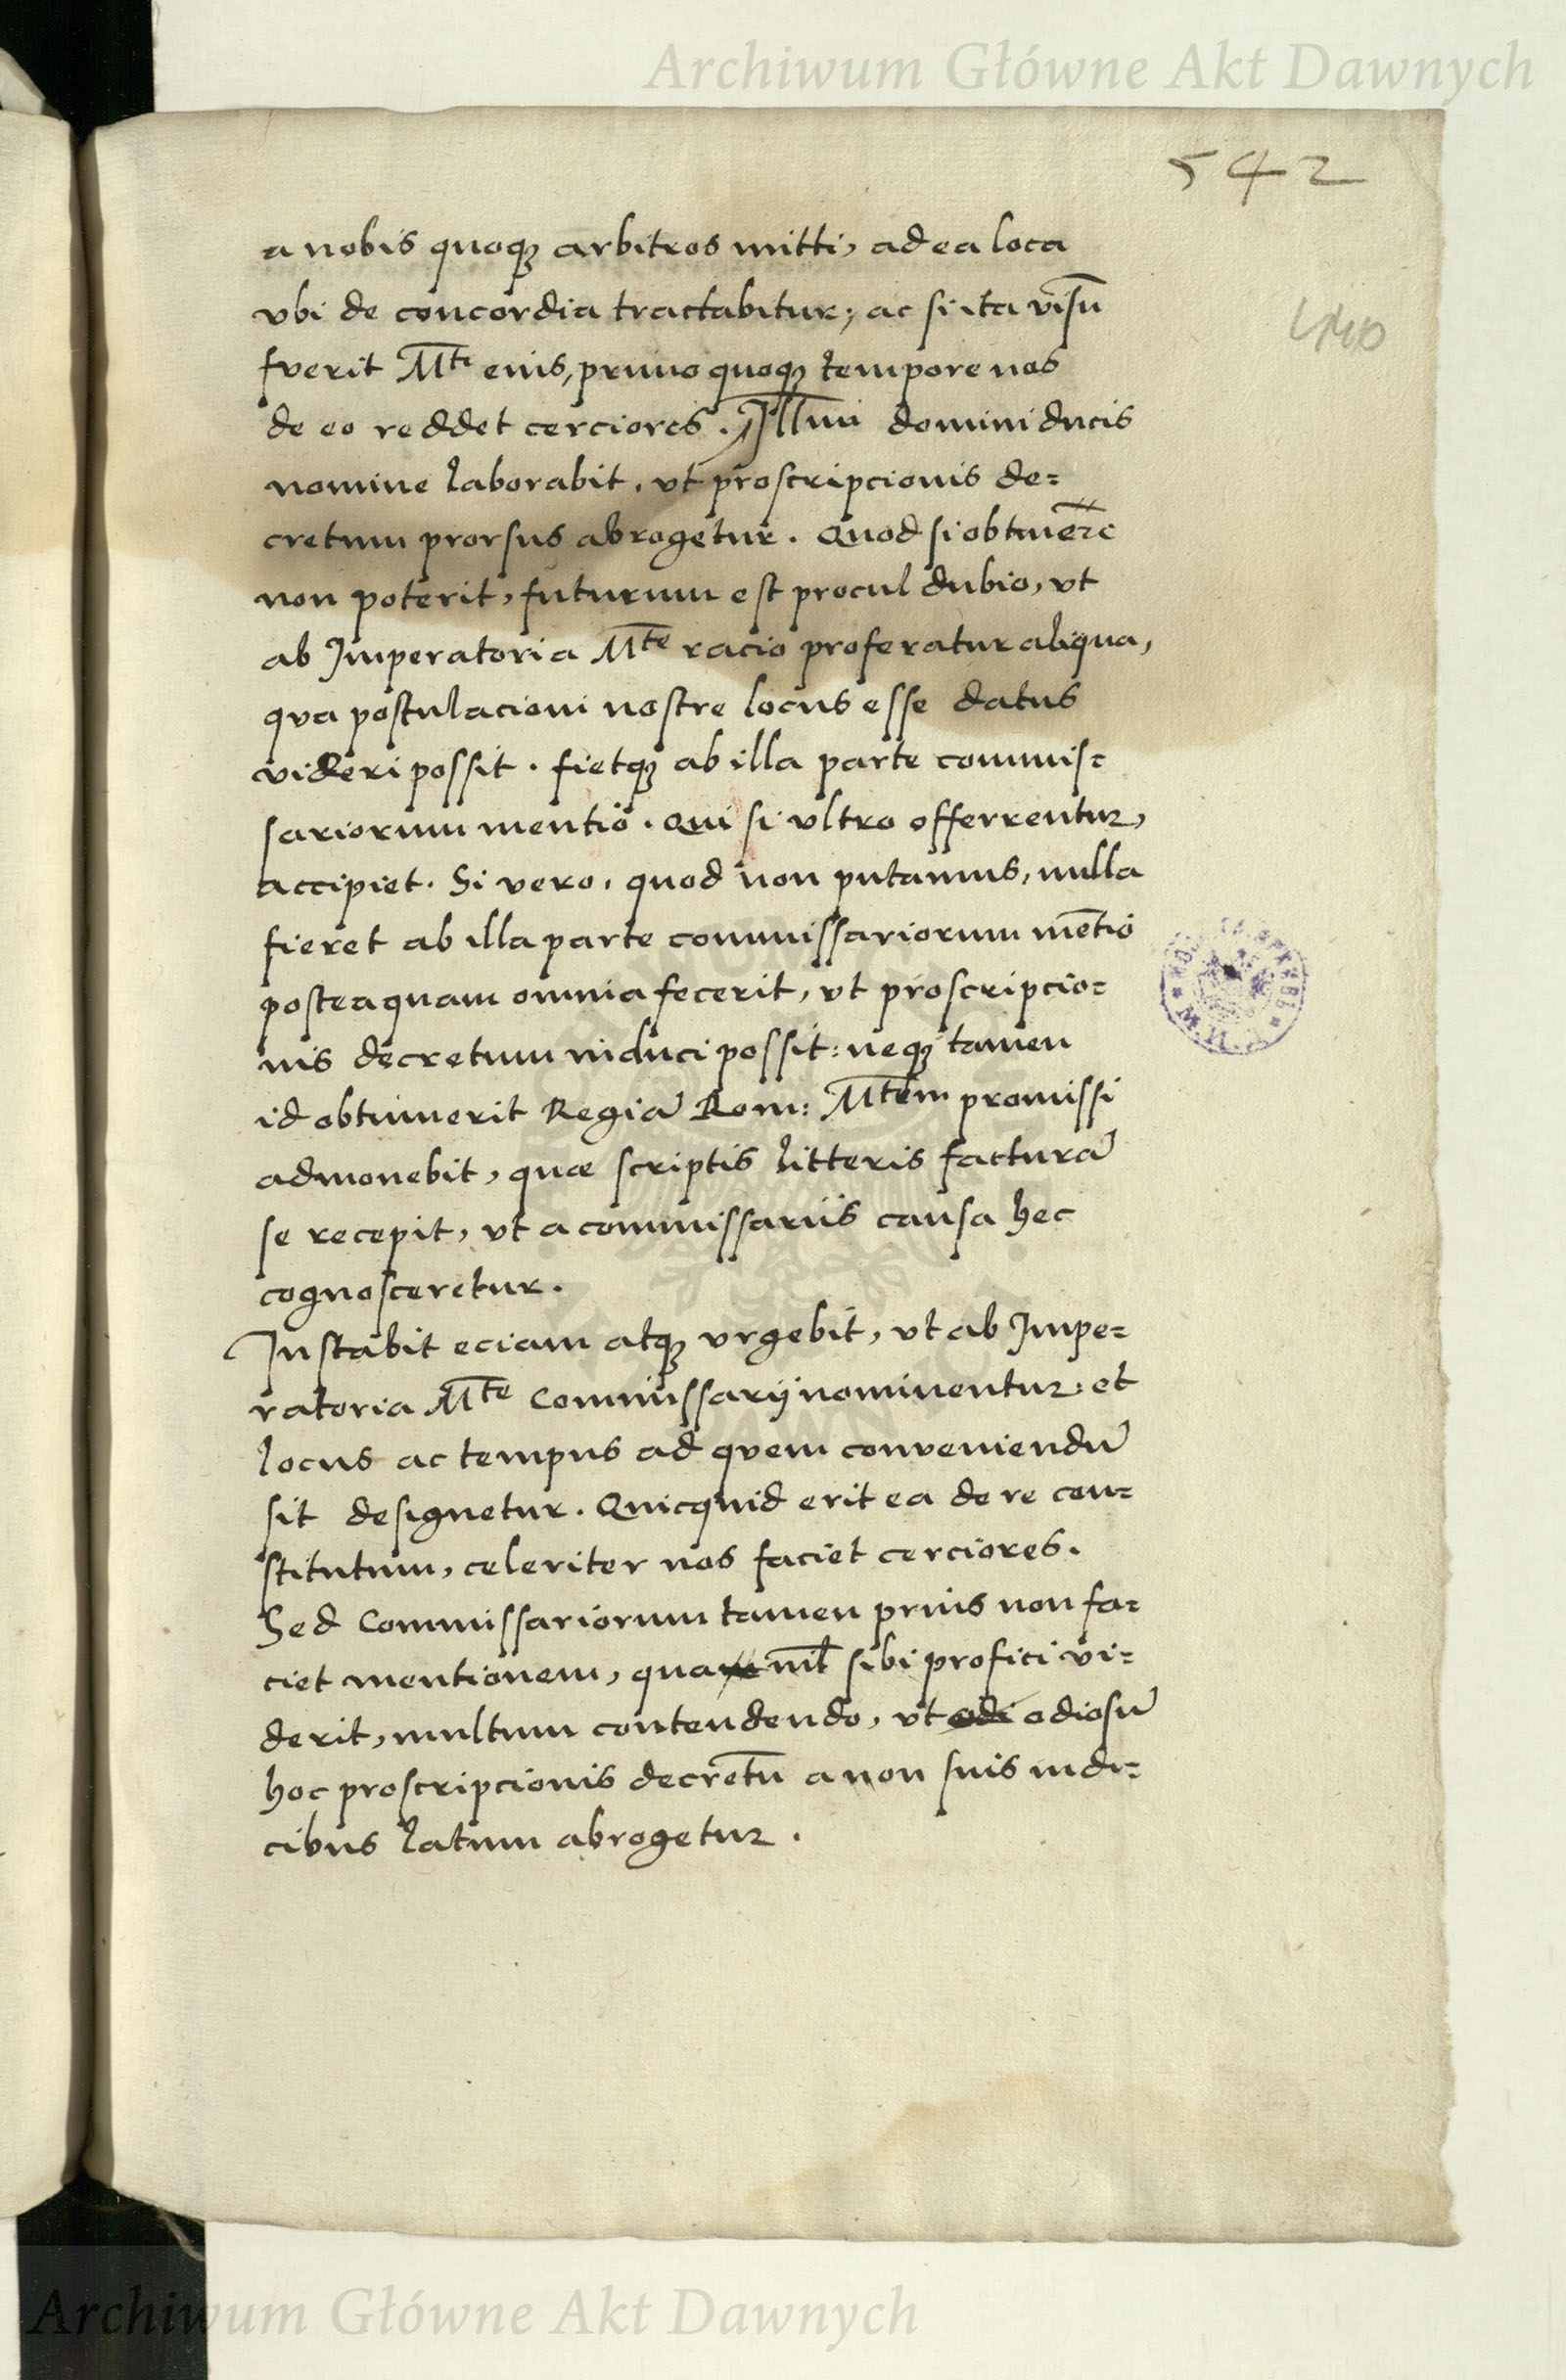 Archiwum Główne Akt Dawnych
542
a nobis quoqꝫ arbitros mitti, ad ea loca
vbi de concordia tractabitur; ac si ita visū
fverit M̅ti eius, primo quoqꝫ tempore nos
de eo reddet cerciores. Ill̅mi domini ducis
nomine laborabit, vt proscripcionis de=
cretum prorsus abrogetur. Quod si obtinere̅
non poterit, futurum est procul dubio, vt
ab Imperatoria M̅te racio proferatur aliqua,
qva postulacioni nostre locus esse datus
videri possit. fietqꝫ ab illa parte commis=
sariorum mentio. Qui si vltro offerrentur,
accipiet. Si vero, quod non putamus, nulla
fieret ab illa parte commissariorum me̅tio
posteaquam omnia fecerit, vt proscripcio=
nis decretum induci possit: neqꝫ tamen
id obtinuerit Regiā Rom: M̅tem promissi
admonebit, quæ scriptis litteris facturā
se recepit, vt a commissariis causa hec
cognosceretur.
Instabit eciam atqꝫ vrgebit, vt ab Impe=
ratoria M̅te Commissarij nominentur: et
locus ac tempus ad qvem conveniendū
sit designetur. Quicquid erit ea de re con=
stitutum, celeriter nos faciet cerciores.
Sed Commissariorum tamen prius non fa=
ciet mentionem, quam nil sibi profici vi=
derit, multum contendendo, vt odi odiosū
hoc proscripcionis decretū a non suis iudi=
cibus latum abrogetur.
Archiwum Główne Akt Dawnych